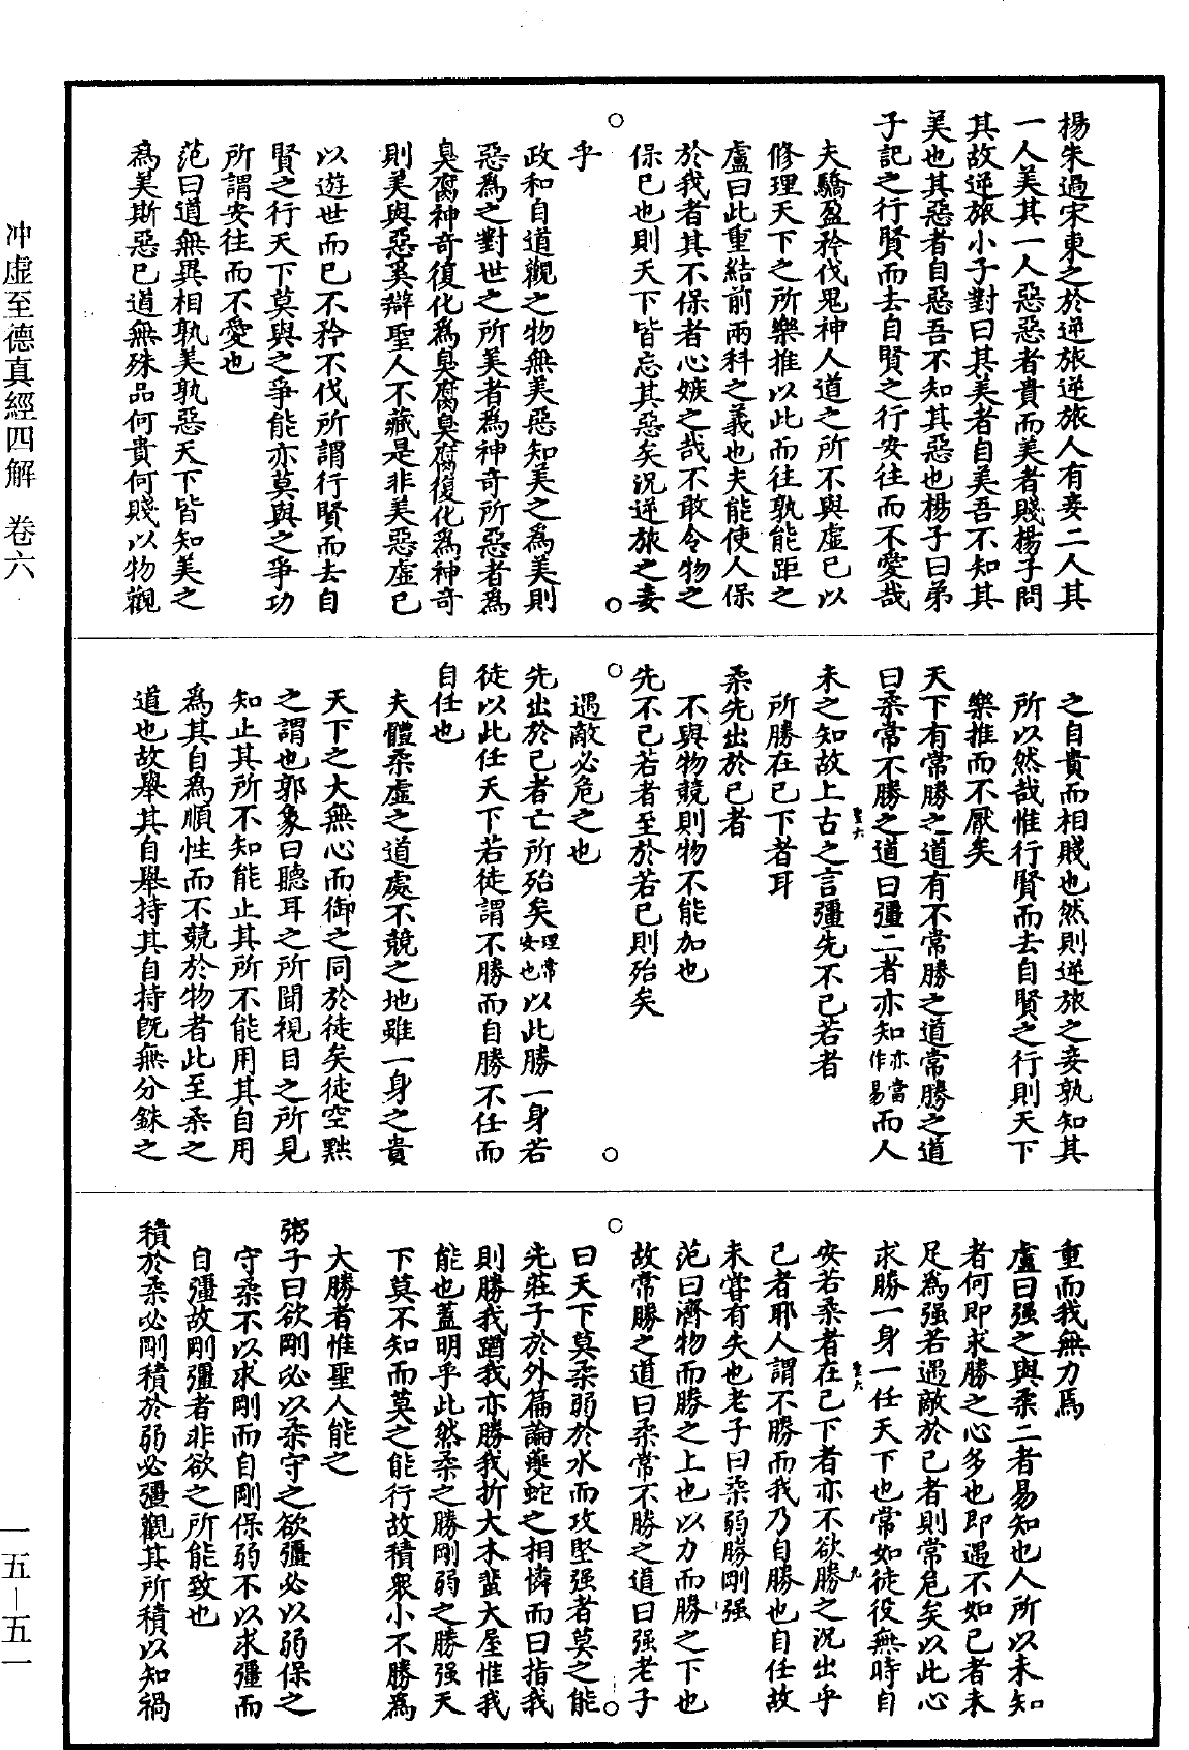 楊朱過宋東之於逆旅逆旅人有妾二人其
一人美其一人惡惡者貴而美者賤楊子問
其故逆旅小子對曰其美者自美吾不知其
美也其惡者自惡吾不知其惡也楊子曰弟
子記之行賢而去自賢之行安往而不愛哉
夫驕盈矜伐鬼神人道之所不與虛己以
修理天下之所樂推以此而往孰能距之
盧曰此重結前兩科之義也夫能使人保
於我者其不保者心嫉之哉不敢令物之
保己也則天下皆忘其惡矣況逆旅之妾
乎
政和自道觀之物無美惡知美之為美則
惡為之對世之所美者為神奇所惡者為
臭腐神奇復化為臭腐臭腐復化為神奇
則美與惡奚辯聖人不藏是非美惡虛己
以遊世而已不矜不伐所謂行賢而去自
賢之行天下莫與之爭能亦莫與之爭功
所謂安往而不愛也
范曰道無異相孰美孰惡天下皆知美之
為美斯惡已道無殊品何貴何賤以物觀
之自貴而相賤也然則逆旅之妾孰知其
所以然哉惟行賢而去自賢之行則天下
樂推而不厭矣
天下有常勝之道有不常勝之道常勝之道
曰柔常不勝之道曰彊二者亦知亦當作易而人
未之知故上古之言彊先不己若者
所勝在己下者耳
柔先出於己者
不與物競則物不能加也
先不己若者至於若己則殆矣
遇敵必危之也
先出於己者亡所殆矣理常安也以此勝一身若
徒以此任天下若徒謂不勝而自勝不任而
自任也
夫體柔虛之道處不競之地雖一身之貴
天下之大無心而御之同於徒矣徒空黙
之謂也郭象曰聽耳之所聞視目之所見
知止其所不知能止其所不能用其自用
為其自為順性而不競於物者此至柔之
道也故舉其自舉持其自持旣無分銖之
重而我無力焉
盧曰强之與柔二者易知也人所以未知
者何即求勝之心多也即遇不如己者未
足為强若遇敵於己者則常危矣以此心
求勝一身一任天下也常如徒役無時自
安若柔者在己下者亦不欲勝之況出乎
己者耶人謂不勝而我乃自勝也自任故
未嘗有失也老子曰柒弱勝剛强
范曰濟物而勝之上也以力而勝之下也
故常勝之道曰柔常不勝之道曰强老子
曰天下莫柔弱於水而攻堅强者莫之能
先莊子於外篇論夔蛇之相憐而曰指我
則勝我蹈我亦勝我折大木蜚大屋惟我
能也蓋明乎此然柔之勝剛弱之勝强天
下莫不知而莫之能行故積衆小不勝為
大勝者惟聖人能之
粥子曰欲剛必以柔守之欲彊必以弱保之
守柔不以求剛而自剛保弱不以求彊而
自彊故剛彊者非欲之所能致也
積於柔必剛積於弱必彊觀其所積以知禍
冲虛至德真經四解 卷六
一五—五一